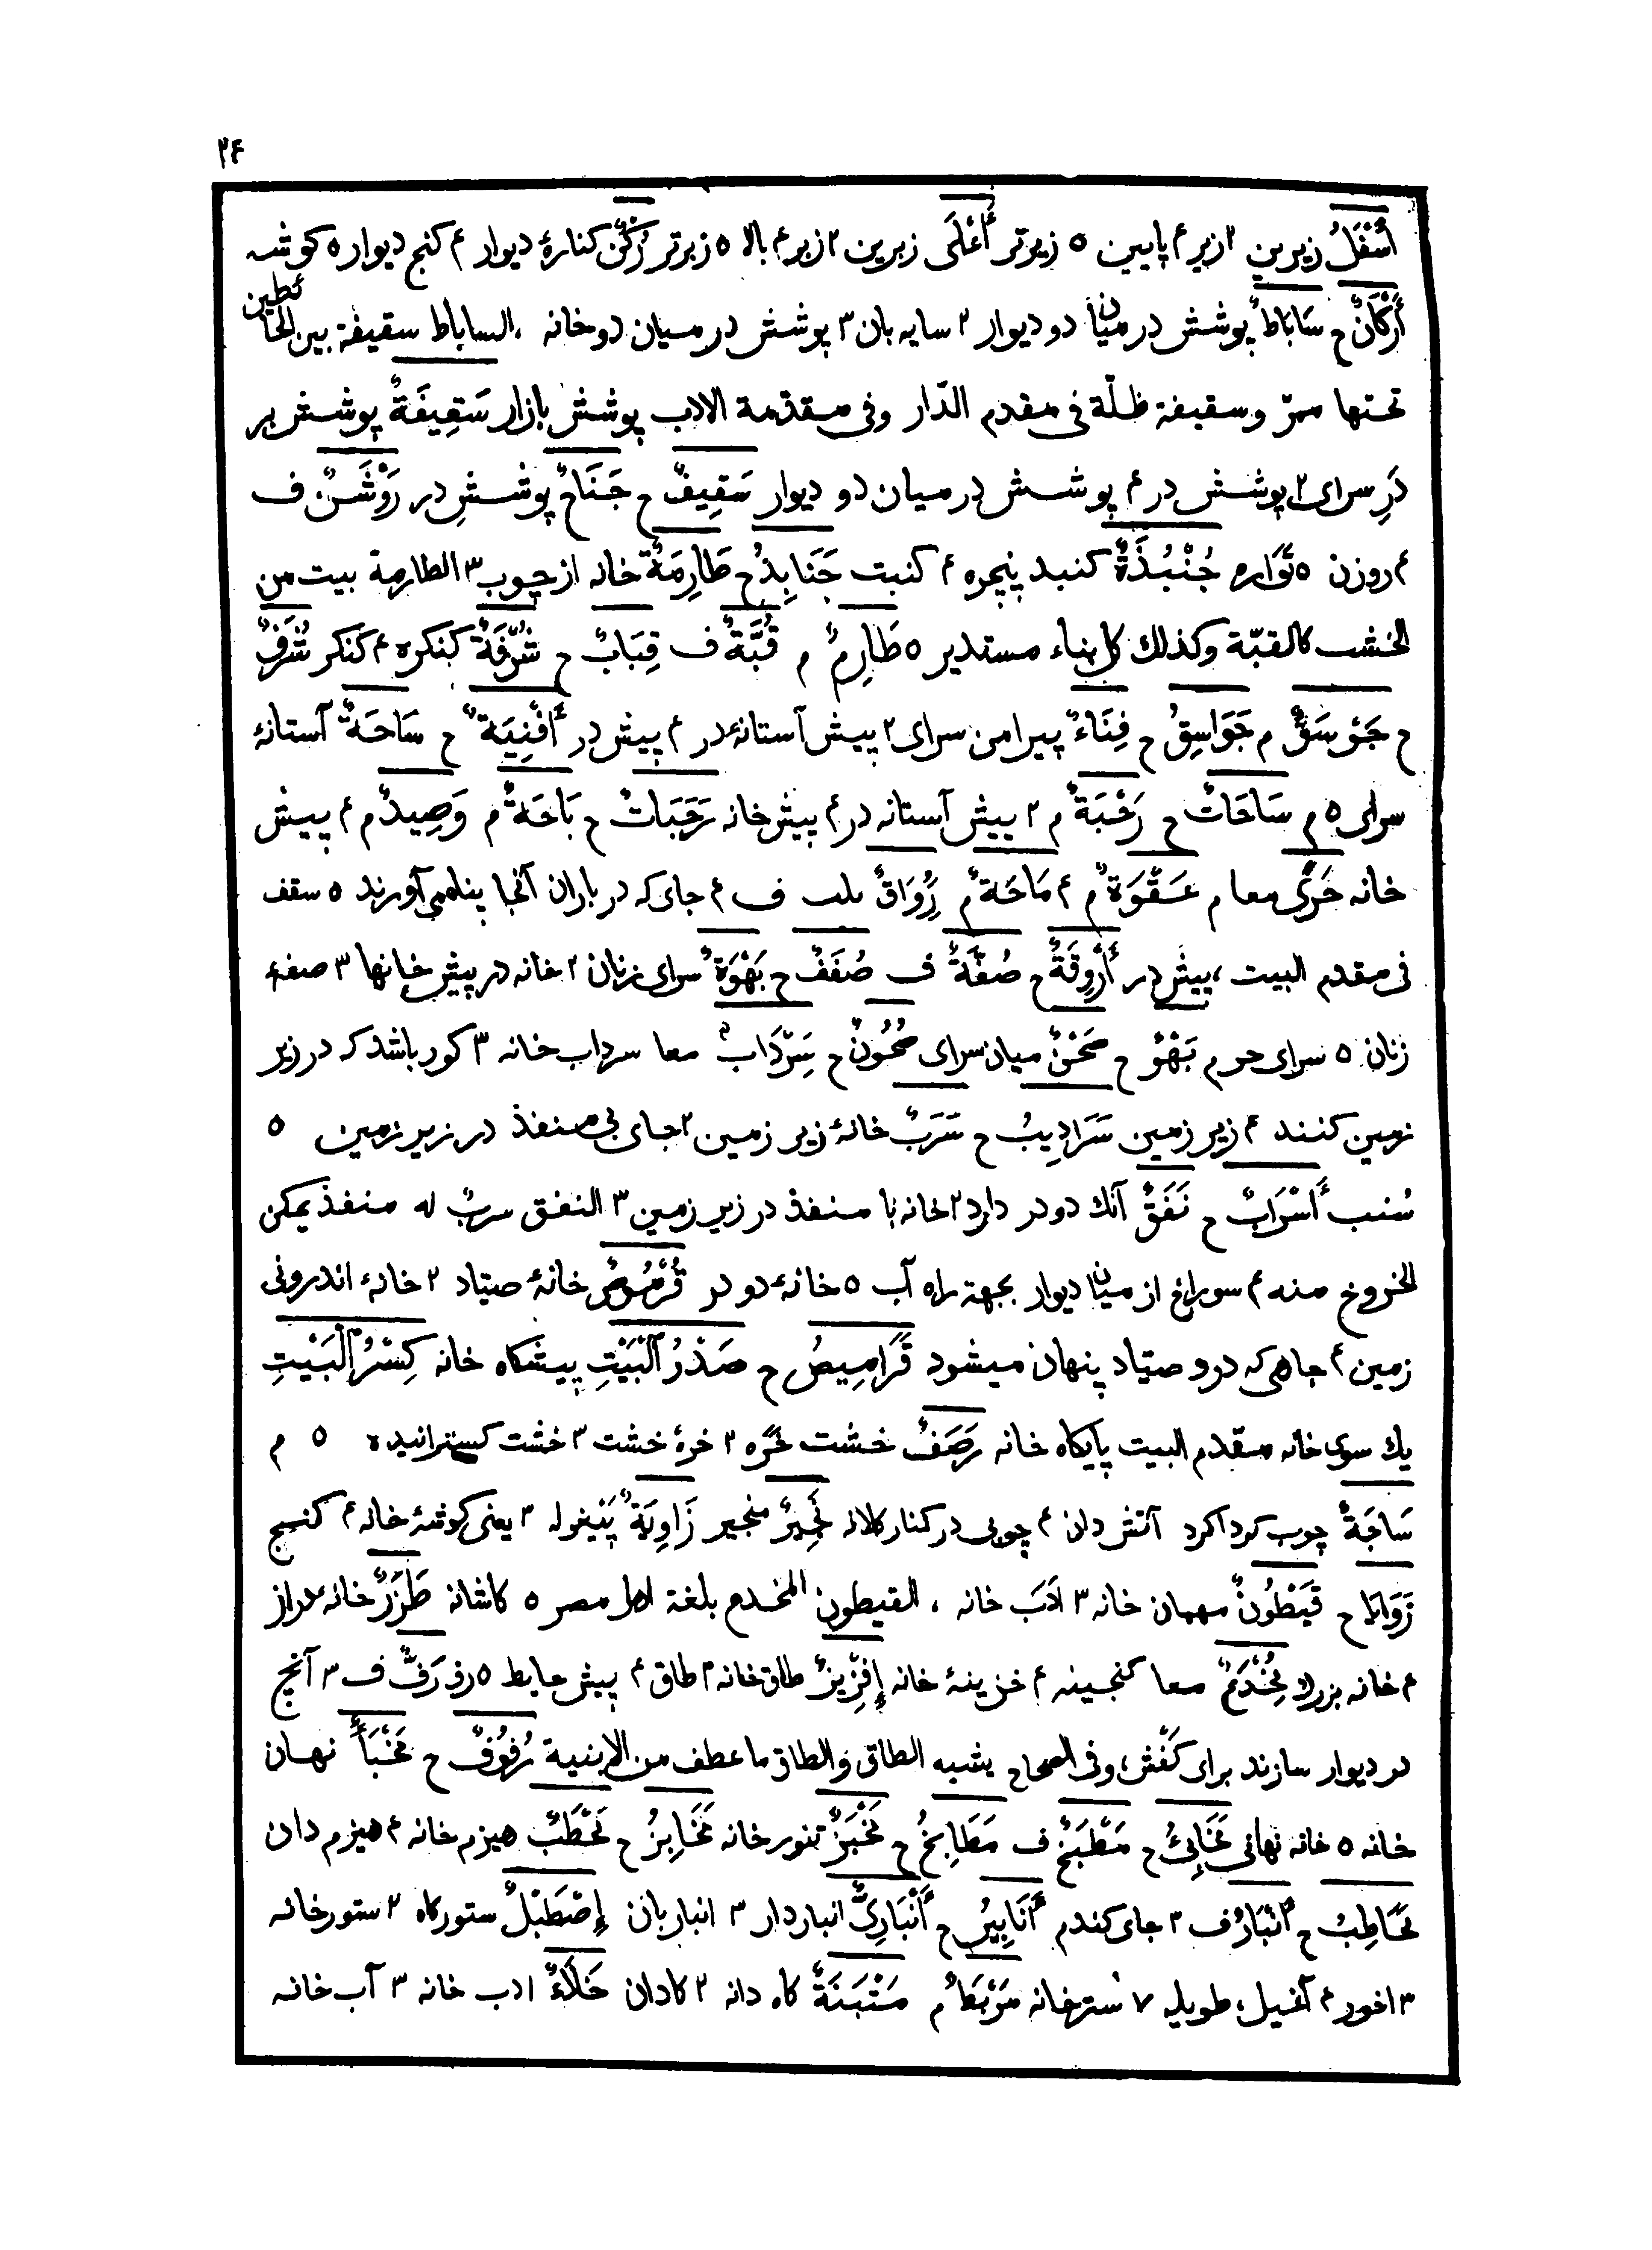 ۲۴
أَسْفَلُ زیرین ۲ زیر ۴ پایین ۵ زیرتر أَعْلَى زبرین ۲ زبر ۴ بالا ۵ زبرتر رُكْنٌ کنارهٔ دیوار ۴ کنج دیوار ۵ کوشه
أَرْكَانٌ ح سَابَاطٌ پوشش در میان دو دیوار ۲ سایه بان ۳ پوشش در میان دو خانه ، الساباط سقیفة بین الحائطین
تحتها ممرّ وسقیفة ظلّة فی مقدم الدّار وفی مقدّمة الادب پوشش بازار سَقِیفَةٌ پوشش بر
دَرِ سرای ۲ پوشش در ۴ پوشش در میان دو دیوار سَقِیفٌ ح جَنَاحٌ پوششِ در رَوْشَنٌ ف
۴ روزن ۵ تَوَاره جُنْبُذَةٌ کنبد پنجره ۴ کنبت جَنَابِذُ ح طَارِمَةٌ خانه از چوب ۳ الطارمة بیت من
الخشب کالقبّة وکذلك کل بناء مستدیر ۵ طَارِمٌ م قُبَّةٌ ف قِبَابٌ ح شُرْفَةٌ کنکره ۴ کنکر شُرَفٌ
ح جَوْسَقٌ م جَوَاسِقُ ح فِنَاءٌ پیرامن سرای ۲ پیش آستانهٔ در ۴ پیش در أَفْنِیَةٌ ح سَاحَةٌ آستانهٔ
سرای ۵ م سَاحَاتٌ ح رَحْبَةٌ م ۲ پیش آستانه در ۴ پیش خانه رَحَبَاتٌ ح بَاحَةٌ م وَصِیدٌ م ۴ پیش
خانه حَرًى معا م عَقْوَةٌ م ۴ مَاحَةٌ م رُِوَاقٌ ف ۴ جای که در باران آنجا پناه می آورند ۵ سقف
فی مقدم البیت ، پیش در أَرْوِقَةٌ ح صُفَّةٌ ف صُفَفٌ ح بَهْوَةٌ سرای زنان ۲ خانه در پیش خانها ۳ صفهٔ
زنان ۵ سرای حرم بَهْوٌ ح صَحْنٌ میان سرای صُحُونٌ ح سِرْدَابٌ معا سرداب خانه ۳ کور باشد که در زیر
زمین کنند ۴ زیر زمین سَرَادِیبُ ح سَرَبٌ خانهٔ زیر زمین ۲ جای بی منفذ در زیر زمین ۵
سُنب أَسْرَابٌ ح نَفَقٌ آنك دو در دارد ۲ خانه با منفذ در زیر زمین ۳ النفق سربٌ له منفذ یمکن
الخروج منه ۴ سوراخ از میان دیوار بجهة راه آب ۵ خانهٔ دو در قُرْمُوصٌ خانهٔ صیّاد ۲ خانهٔ اندرونی
زمین ۴ جاهی که درو صیّاد پنهان میشود قَرَامِیصُ ح صَدْرُ الْبَیْتِ پیشکاه خانه کِسْرُ الْبَیْتِ
یك سوی خانه مقدم البیت پایکاه خانه رَصَفٌ خشت خَره ۲ خرهٔ خشت ۳ خشت کسترانیده ۵ م
سَاجَةٌ چوب کرداکرد آتش دان ۴ چوبی در کنار کلانه نَجِیرٌ منجیر زَاوِیَةٌ پَیْغوله ۳ یعنی کوشهٔ خانه ۴ کنج
زَوَایَا ح قَیْطُونٌ مهمان خانه ۳ اَدَب خانه ، القیطون المخدع بلغة اهل مصر ۵ کاشانه طَزَرٌ خانهٔ دراز
۴ خانه بزرك مُِخْدَعٌ معا کنجینه ۴ خزینهٔ خانه إِفْرِیزٌ طاق خانه ۳ طاق ۴ پیش حایط ۵ رف رَفٌّ ف ۳ آنج
در دیوار سازند برای کَفْش ، وفی الصحاح یشبه الطاق والطاق ما عطف من الابنیة رُفُوفٌ ح مَخْبَأٌ نهان
خانه ۵ خانه نهانی مَخَابِئُ ح مَطْبَخٌ ف مَطَابِخُ ح مَخْبَزٌ تنور خانه مَخَابِزُ ح مَحْطَبٌ هیزم خانه ۴ هیزم دان
مَحَاطِبُ ح أَنْبَارٌ ف ۳ جای کندم أَنَابِیرُ ح أَنْبَارِیٌّ انباردار ۳ انباربان إِصْطَبْلٌ ستورکاه ۲ ستورخانه
۳ اخور ۴ آغیل ، طویله ۷ شترخانه مَرْبَطٌ م مَتْبَنَةٌ کاه دانه ۲ کادان خَلَاءٌ ادب خانه ۳ آب خانه